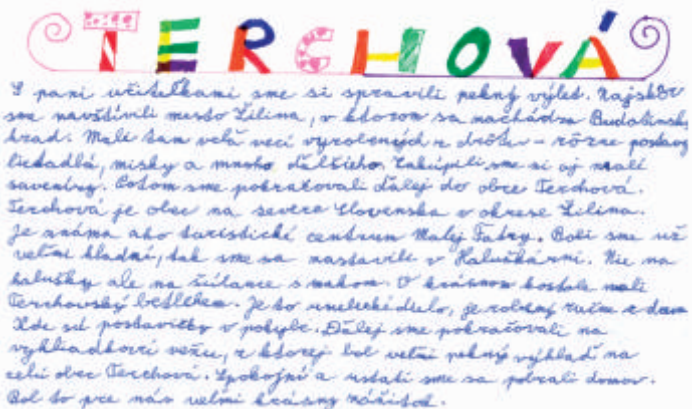 TERCHOVÁ
S pani učiteľkami sme si spravili pekný výlet. Najskôr
sme navštívili mesto Žilina, v ktorom sa nachádza Budatínsky
hrad. Mali tam veľa vecí vyrobených z drôtu - rôzne postavy
lietadlá, misky a mnoho ďalšieho. Zakúpili sme si aj malé
suveníry. Potom sme pokračovali ďalej do obce Terchová.
Terchová je obec na severe Slovenska v okrese Žilina.
Je známa ako turistické centrum Malej Fatry. Boli sme už
veľmi hladní, tak sme sa nastavili v Haluškárni. Nie na
halušky ale na šúľance s makom. V krásnom kostole mali
Terchovský betlehem. Je to umelecké dielo, je robený ručne z dreva
Kde sú postavičky v pohybe. Ďalej sme pokračovali na
vyhliadkovú vežu, z ktorej bol veľmi pekný výhľad na
celú obec Terchová. Spokojní a ustatí sme sa pobrali domov.
Bol to pre nás veľmi krásny zážitok.